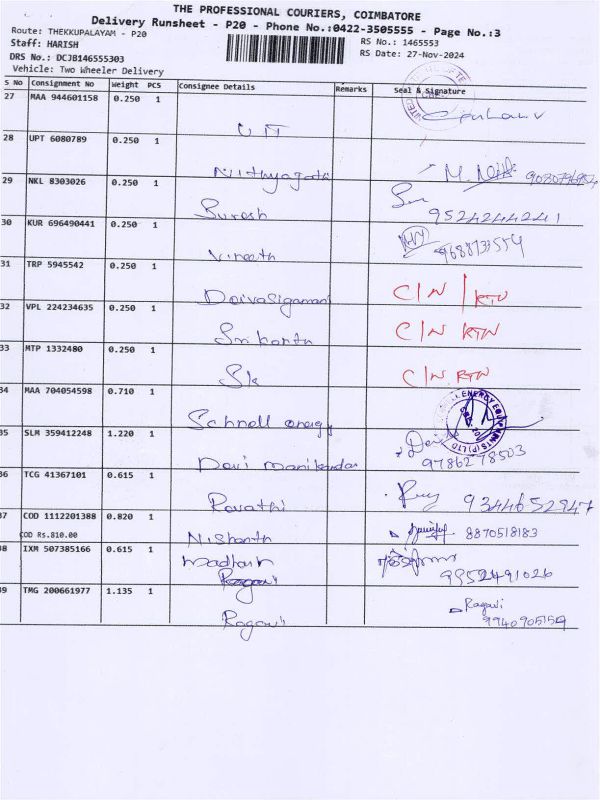 THE PROFESSIONAL COURIERS, COIMBATORE
Delivery Runsheet - P20 - Phone No.:0422-3505555 - Page No.:3
Route: THEKKUPALAYAM - P20
RS No.: 1465553
Staff: HARISH
RS Date: 27-Nov-2024
DRS No.: DCJB146555303
Vehicle: Two Wheeler Delivery
S No Consignment No Weight PCS Consignee Details Remarks Seal & Signature
27 MAA 944601158 0.250 1
28 UPT 6080789 0.250 1
29 NKL 8303026 0.250 1 Suresh 9524244241
30 KUR 696490441 0.250 1 Vineeth
31 TRP 5945542 0.250 1 Deivasigamani C/N / RTN
32 VPL 224234635 0.250 1 Srikanth C/N RTN
33 MTP 1332480 0.250 1 Sk C/N RTN
34 MAA 704054598 0.710 1 Schnell energy
35 SLM 359412248 1.220 1 Devi Manikandan 9786278503
36 TCG 41367101 0.615 1 Revathi 9344652947
37 COD 1112201388 0.820 1 Nishanth 8870518183
COD Rs.810.00
38 IXM 507385166 0.615 1 Madhan 9952491026
39 TMG 200661977 1.135 1 Ragavi Ragavi